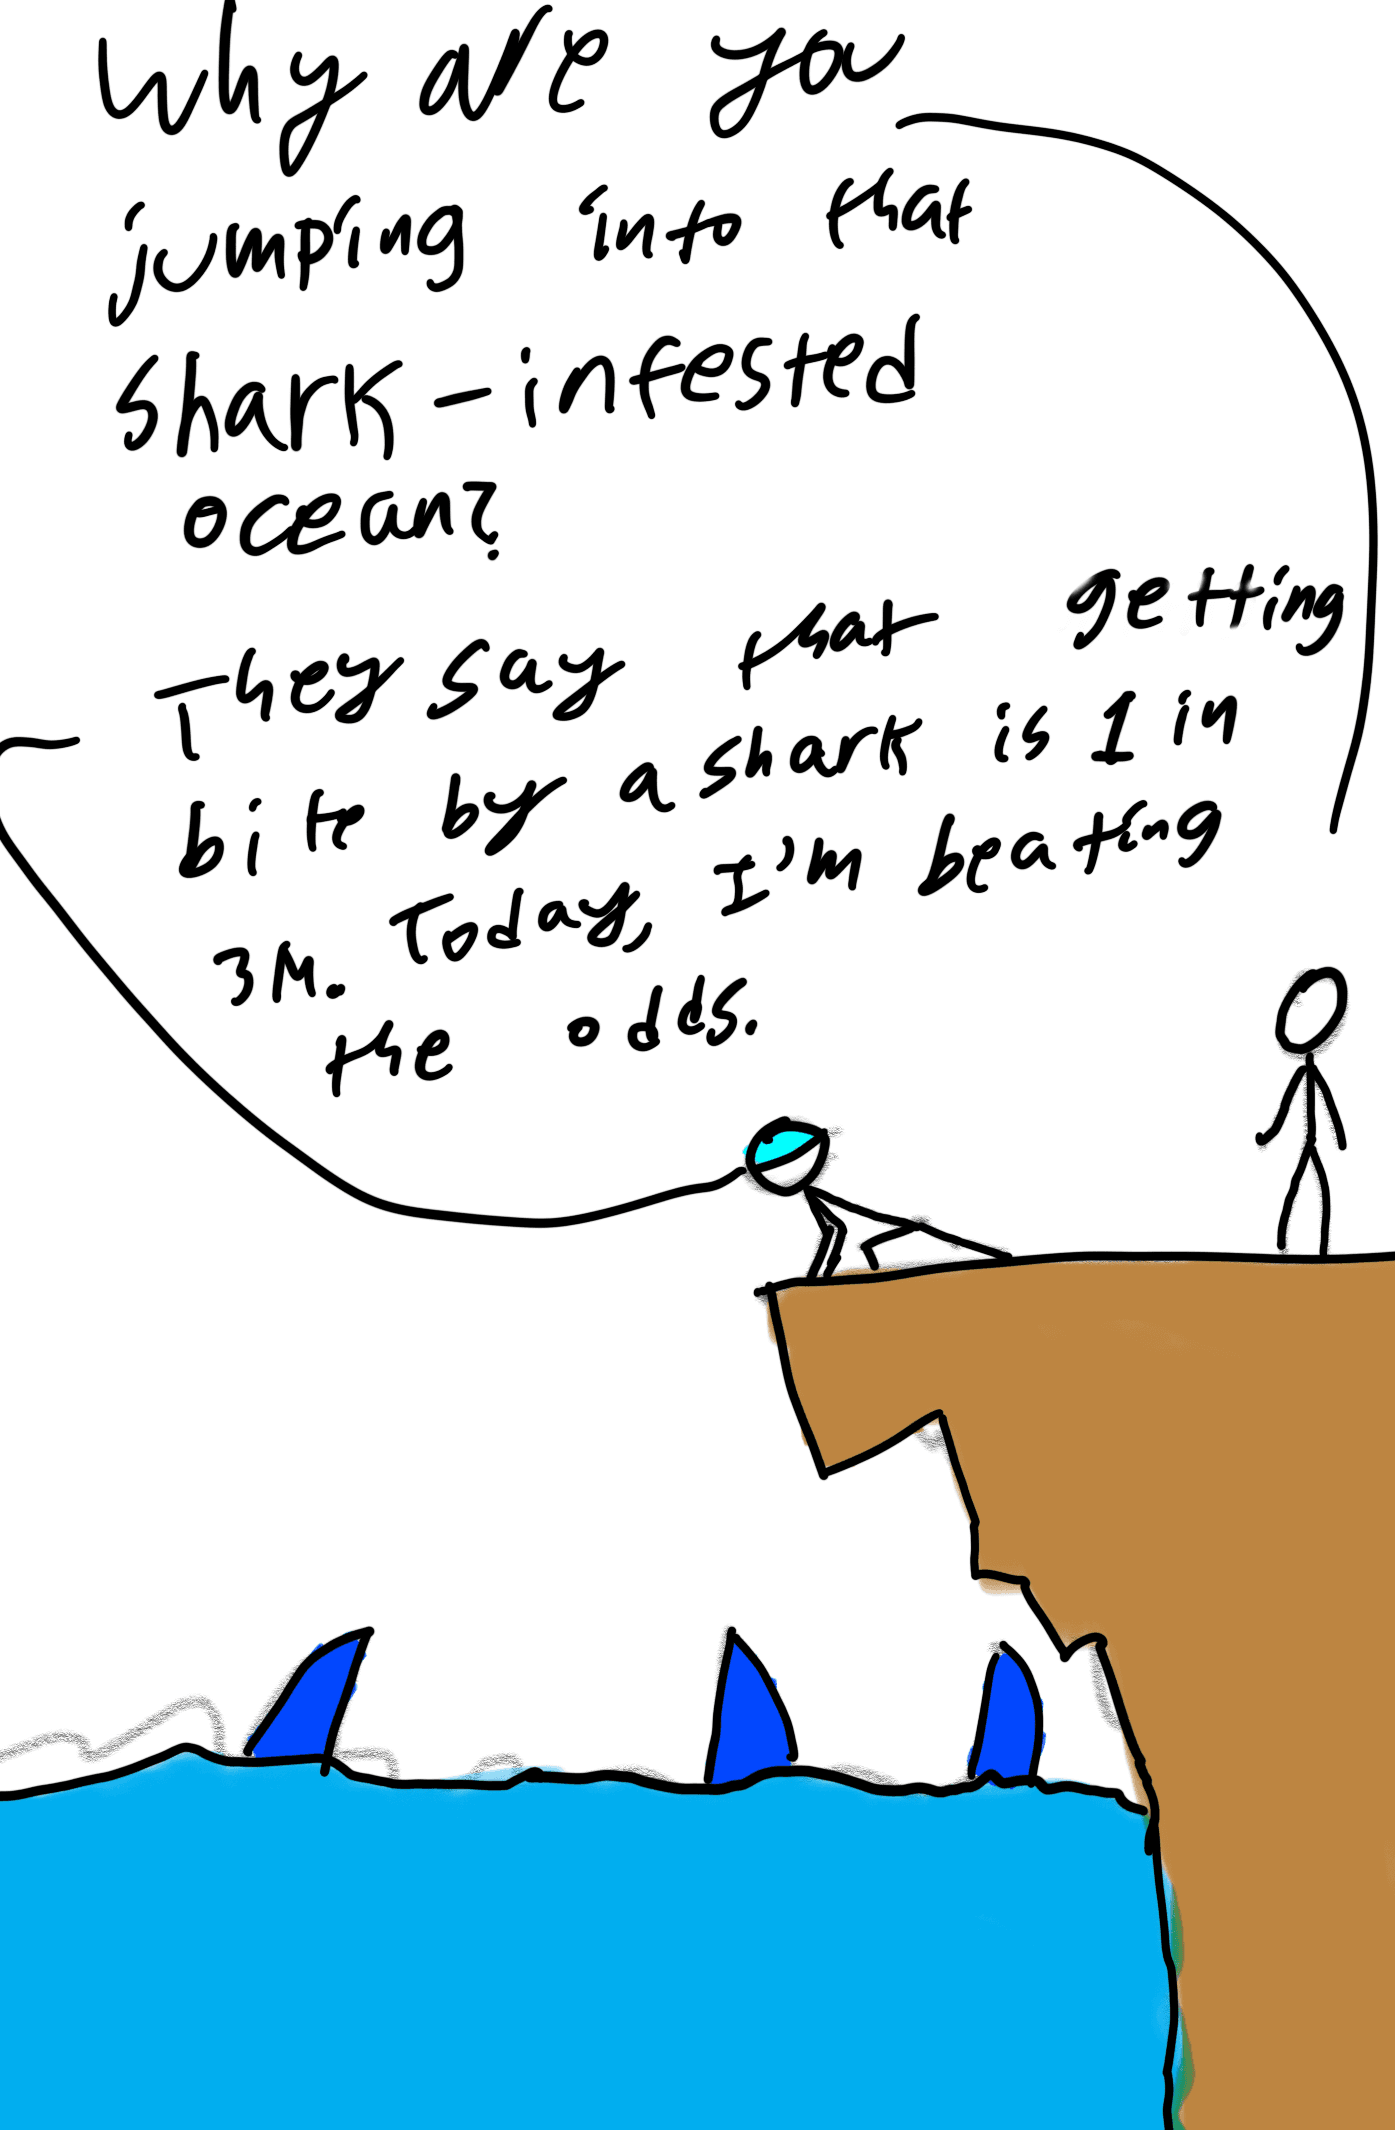 Why are you
jumping into that
shark-infested
ocean?
They say that getting
bite by a shark is 1 in
3M. Today, I'm beating
the odds.